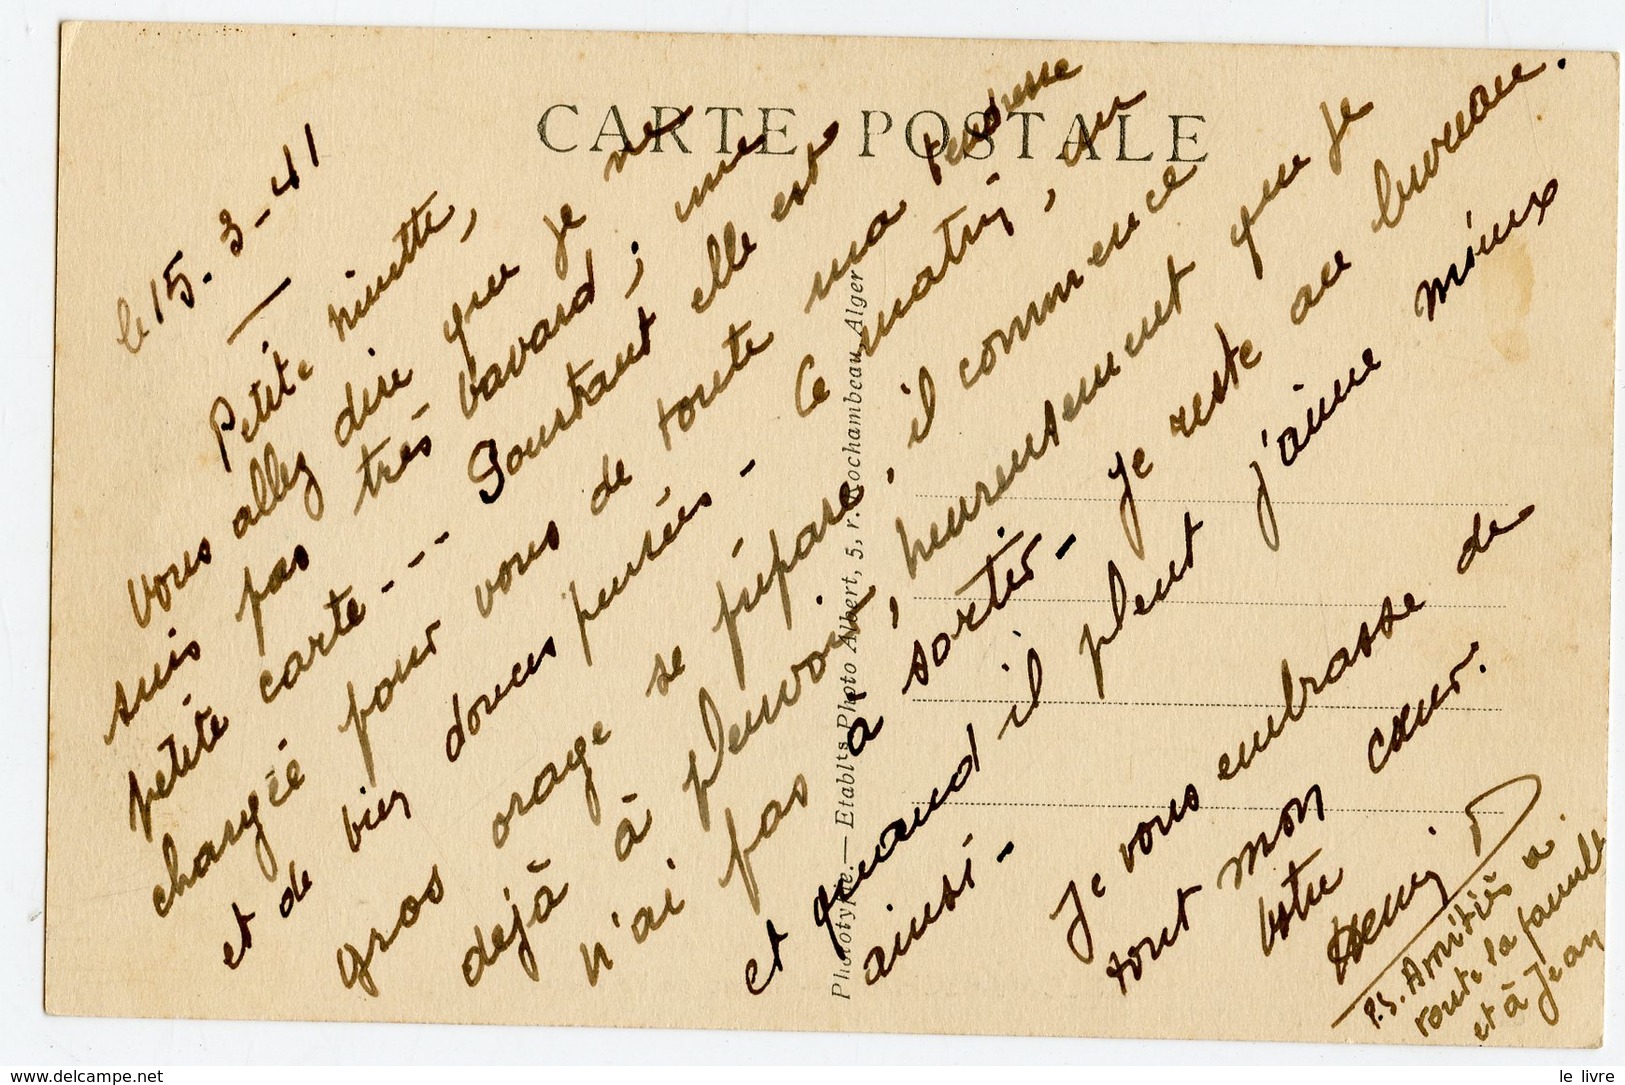 CARTE POSTALE
le 15-3-41
Petite minette,
Vous allez dire que je ne
suis pas très bavard ; une
petite carte --- Pourtant elle est
chargée pour vous de toute ma tendresse
et de bien douces pensées - Ce matin, un
gros orage se prépare, il commence
déjà à pleuvoir, heureusement que je
n'ai pas à sortir - Je reste au bureau.
et quand il pleut j'aime mieux
ainsi -
Je vous embrasse de
tout mon cœur.
Votre
Henri
P.S. Amitiés à
toute la famille
et à Jean
Phototypie. — Etablts Photo Albert, 5, r. Rochambeau, Alger
delcampe.net
le livre